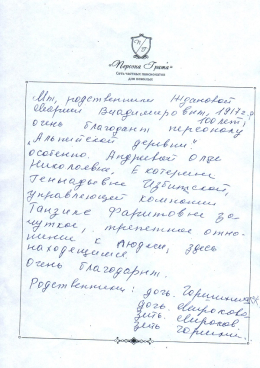 «Первая Грата»
Сеть частных пансионатов
для пожилых
Мы, родственники Ждановой
Марии Владимировны, 1917 г.р
100 лет,
очень благодарны персоналу
„Альпийской деревни"
особенно Андреевой Ольге
Николаевне, Екатерине
Геннадьевне Избитской,
управляющей компании
Танзиле Фаритовне за
чуткое, трепетное отно-
шение к людям, здесь
находящимся.
Очень благодарны.
Родственники: дочь
дочь Широкова
зять Широков
зять